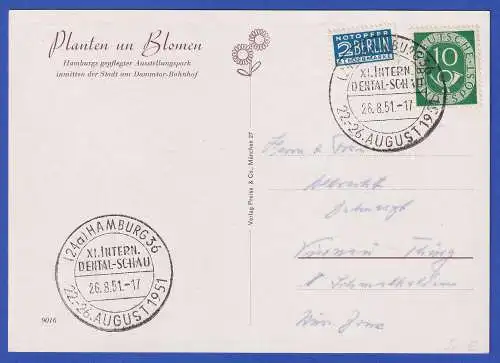 Planten un Blomen
Hamburgs gepflegter Ausstellungspark
inmitten der Stadt am Dammtor-Bahnhof
NOTOPFER
2 BERLIN
STEUERMARKE
DEUTSCHE
10
POST
HAMBURG
XI. INTERN.
DENTAL-SCHAU
26.8.51.-17
22.-26. AUGUST 1951
Verlag Preiss & Co., München 27
Herrn u. Frau
Albrecht
(24a) HAMBURG 36
XI. INTERN.
DENTAL-SCHAU
26.8.51.-17
22.-26. AUGUST 1951
Schmalkalden
9016